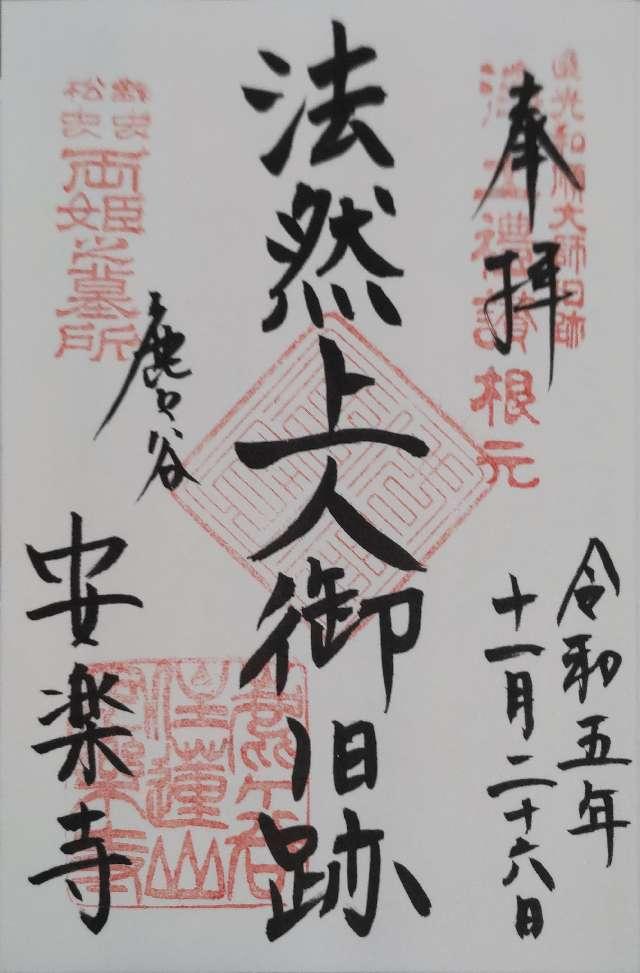 奉拝
光和順大師旧跡
浄土禮讃根元
令和五年
十一月二十六日
法然上人御旧跡
鈴虫
松虫
両姫之墓所
鹿ケ谷
安楽寺
鹿ケ谷
住蓮山
安楽寺